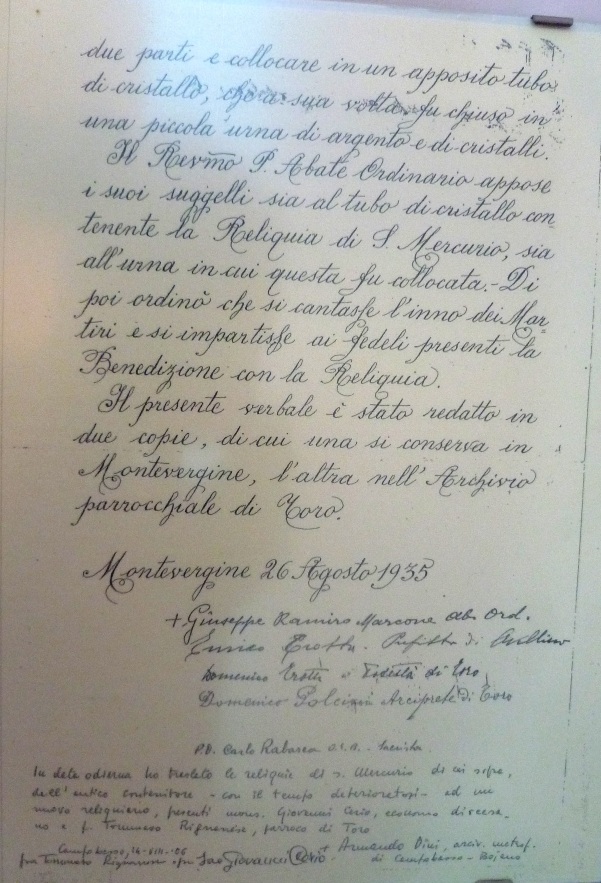 due parti e collocare in un apposito tubo
di cristallo, che a sua volta fu chiuso in
una piccola urna di argento e di cristalli.
Il Revmo P. Abate Ordinario appose
i suoi suggelli sia al tubo di cristallo con-
tenente la Reliquia di S. Mercurio, sia
all'urna in cui questa fu collocata.- Di
poi ordinò che si cantasse l'inno dei Mar=
tiri e si impartisse ai fedeli presenti la
Benedizione con la Reliquia.
Il presente verbale è stato redatto in
due copie, di cui una si conserva in
Montevergine, l'altra nell'Archivio
parrocchiale di Toro.
Montevergine 26 Agosto 1935
+ Giuseppe Ramiro Marcone Ab. Ord.
Enrico Trotta. Prefetto di Avellino
Domenico Trotta Podestà di Toro
Domenico Arciprete di Toro
P.D. Carlo Rabasca
In data odierna ho traslato le reliquie di S. Mercurio di cui sopra,
dall'antico contenitore - con il tempo deterioratosi - ad un
nuovo reliquiario, presenti mons. Giovanni Cerio, economo diocesa-
no e f. Tommaso Rignanese, parroco di Toro
Campobasso, 16-VIII-06
fra Tommaso Rignanese Giovanni Cerio + Armando Dini, arciv. metrop.
di Campobasso - Bojano